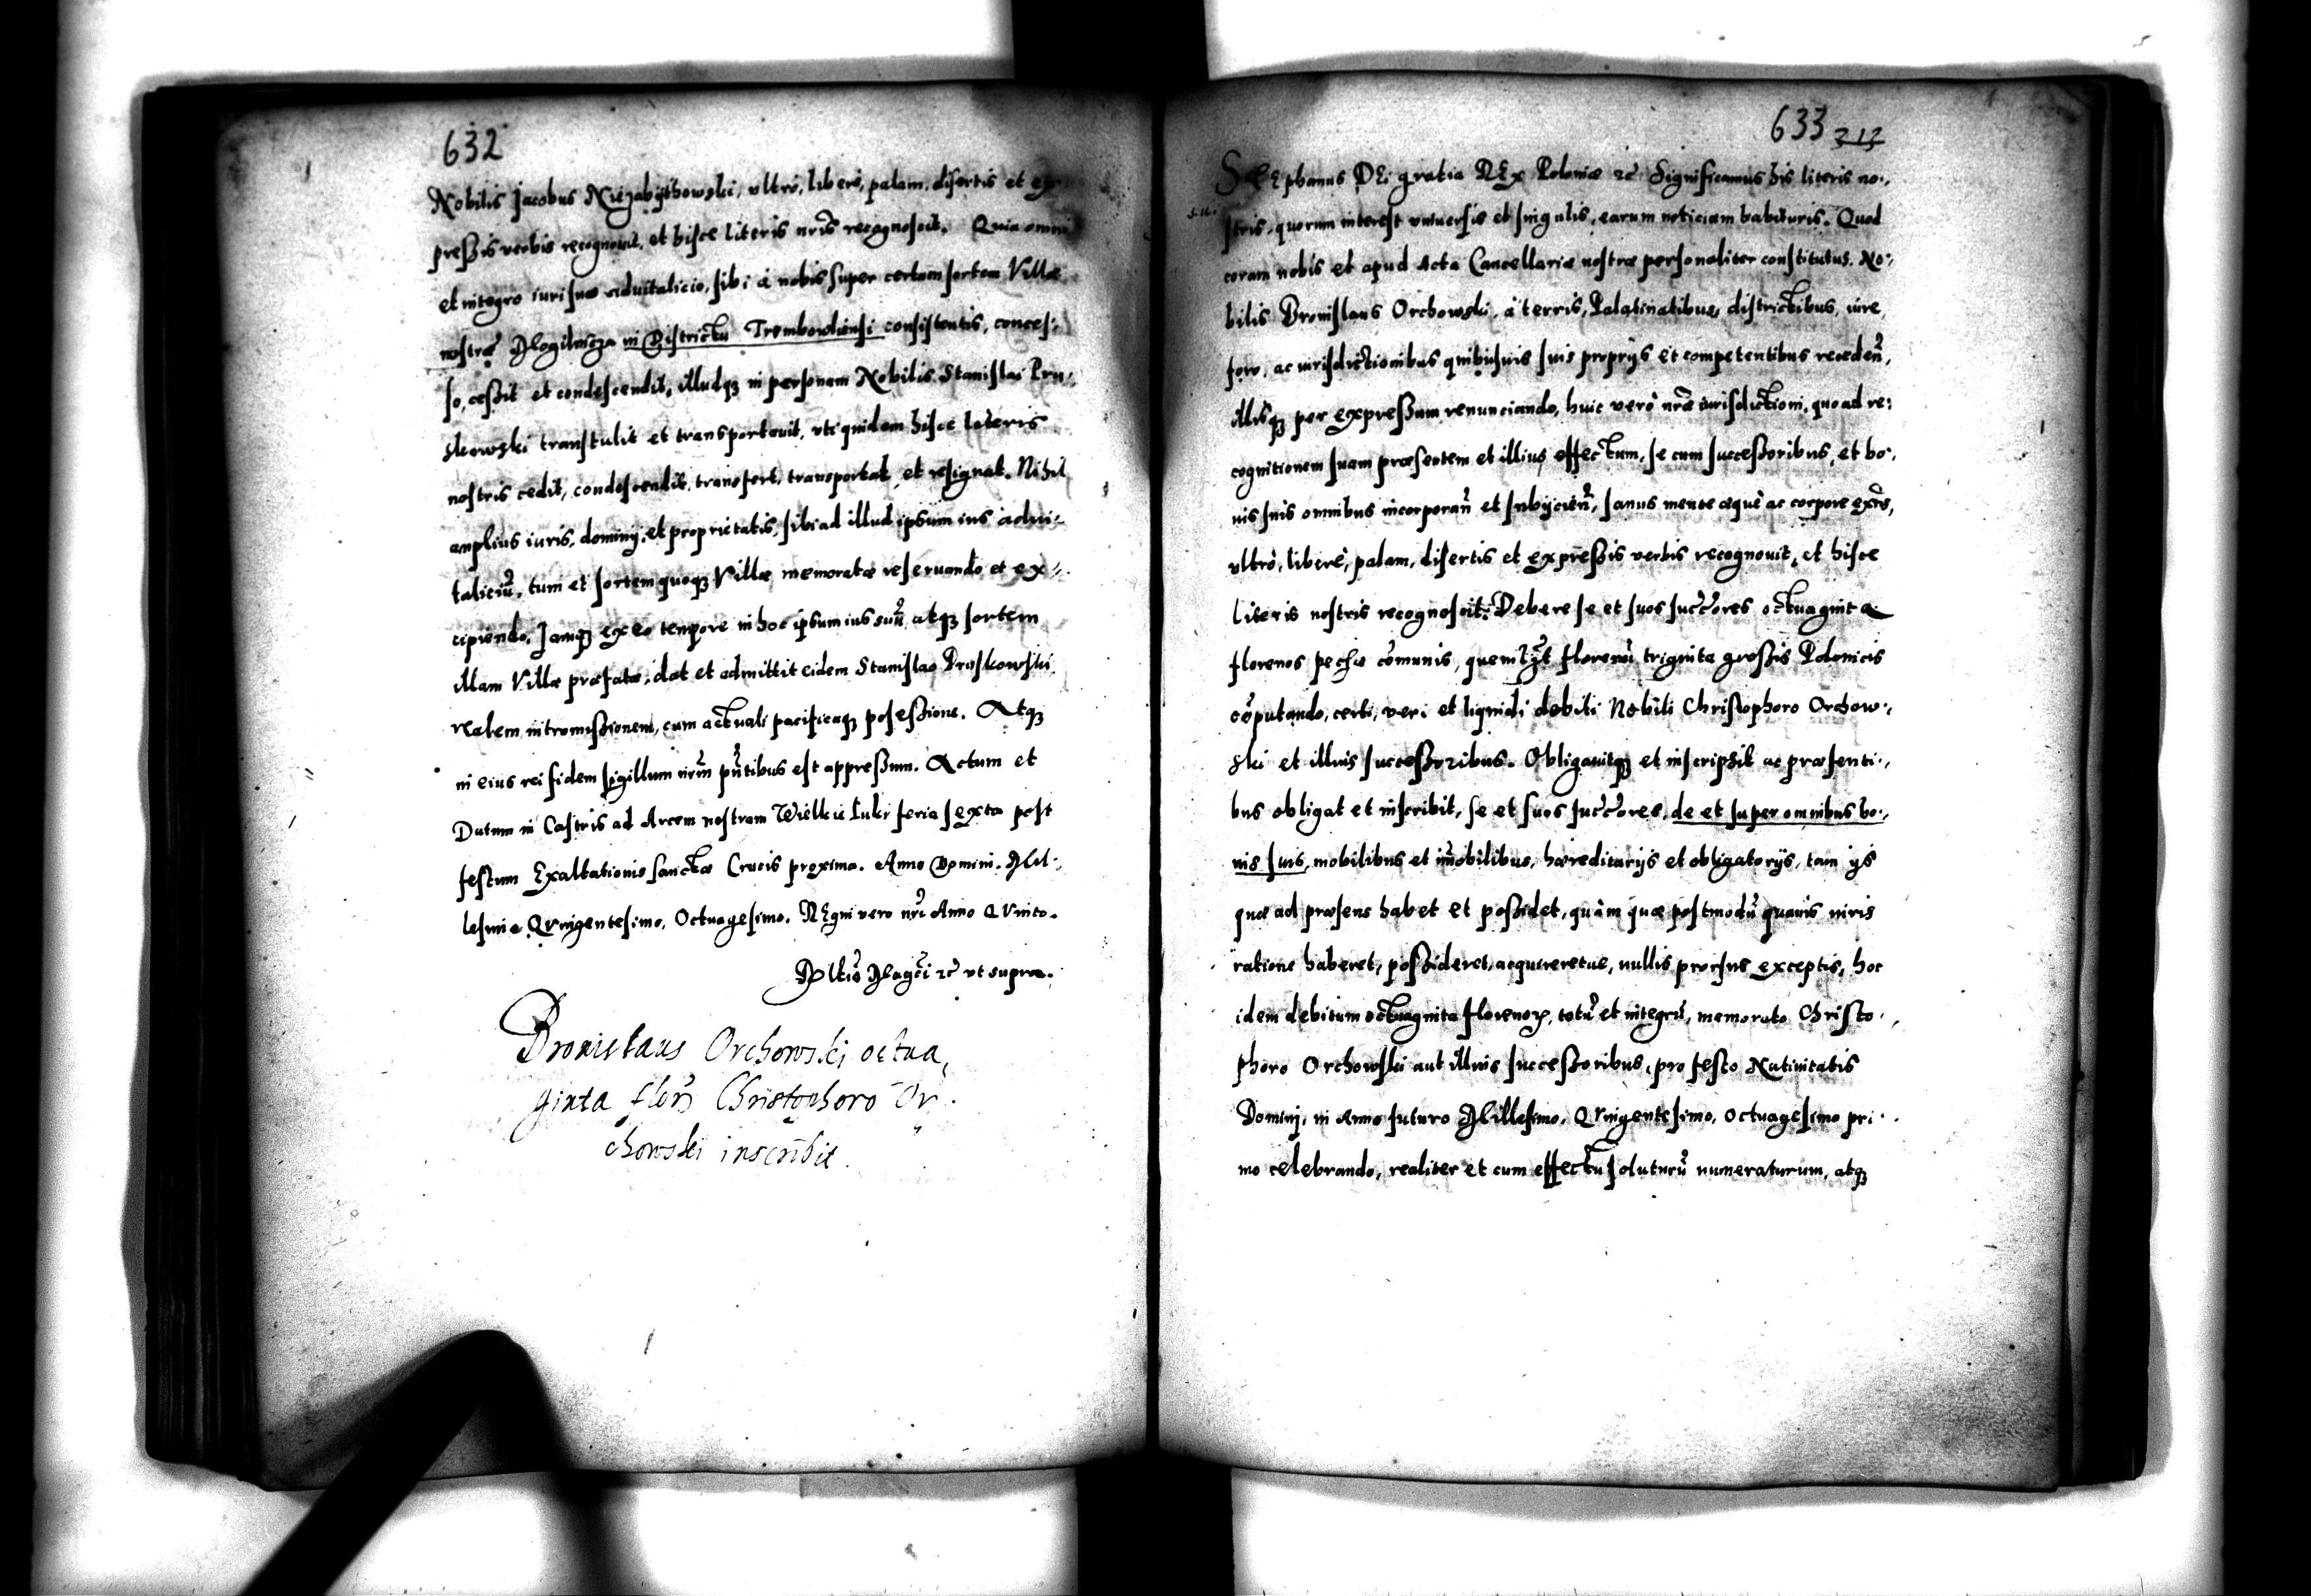 632
Nobilis Jacobus Niezabythowski, ultro, libere, palam, disertis et ex
pressis verbis recognovit, et hisce literis nris recognoscit. Quia omni
et integro iuri suo advitalicio, sibi à nobis super certam sortem Villæ
nostræ Mogilnicza in Districtu Trembowliensi consistentis, conces:,
so, cessit et condescendit, illudq3 in personam Nobilis Stanislai Pru:,
skowski transtulit et transportavit, uti quidem hisce literis
nostris cedit, condescendit, transfert, transportat, et resignat. Nihil
amplius iuris, dominij, et proprietatis, sibi ad illud ipsum ius advi:,
taliciũ, tum et sortem quoq3 Villæ memoratæ reservando et ex:,
cipiendo. Jamq3 ex eo tempore in hoc ipsum ius suũ atq3 sortem
illam Villæ præfatæ, dat et admittit eidem Stanislao Pruskowski
realem intromissionem, cum actuali pacificaq3 possessione. Atq3
in eius rei fidem sigillum nrm pntibus est appressum. Actum et
Datum in Castris ad Arcem nostram Wielkie Luki feria sexta post
festum Exaltationis sanctæ Crucis proxima. Anno Domini. Mil:,
lesimo Quingentesimo, Octuagesimo. REgni vero nri Anno Quinto.
Mci 2c ut supra.
Bronislaus Orchowski octua,
ginta flor Christophoro Or
chowski inscribit.
633 313
StEphanus DEi gratia REx Poloniæ 2c Significamus his literis no:,
stris, quorum interest universis et singulis, earum noticiam habituris. Quod
coram nobis et apud Acta Cancellariæ nostræ personaliter constitutus. No:,
bilis Bronislaus Orchowski, à terris, Palatinatibus, districtibus, iure,
foro, ac iurisdictionibus quibusvis suis proprijs et competentibus receden,
illisq3 per expressum renunciando, huic verò nræ iurisdictioni, quo ad re:
cognitionem suam præsentem et illius effectum, se cum successoribus, et bo:,
nis suis omnibus incorporan et subijcien, sanus mente æquè ac corpore exñs,
ultrò, liberè, palam, disertis et expressis verbis recognovit, et hisce
literis nostris recognoscit: Debere se et suos succores octuaginta
florenos pechæ comunis, quemlyt florenũ triginta grossis Polonicis
coputando, certi, veri et liquidi debiti Nobili Christophoro Orchow:,
ski et illius successoribus. Obligavitq3 et inscripsit ac præsenti:,
bus obligat et inscribit, se et suos succores, de et super omnibus bo:,
nis suis, mobilibus et imobilibus, hæreditarijs et obligatorijs, tam ijs
quæ ad præsens habet et possidet, quàm quæ postmodũ quavis iuris
ratione haberet, possideret, acquireretue, nullis prorsus exceptis, hoc
idem debitum octuaginta florenoꝝ, totũ et integrũ, memorato Christo:,
phoro Orchowski aut illius successoribus, pro festo Nativitatis
Domini, in Anno futuro Millesimo, Quingentesimo, Octuagesimo pri:
mo celebrando, realiter et cum effectu soluturũ numeraturum, atq3